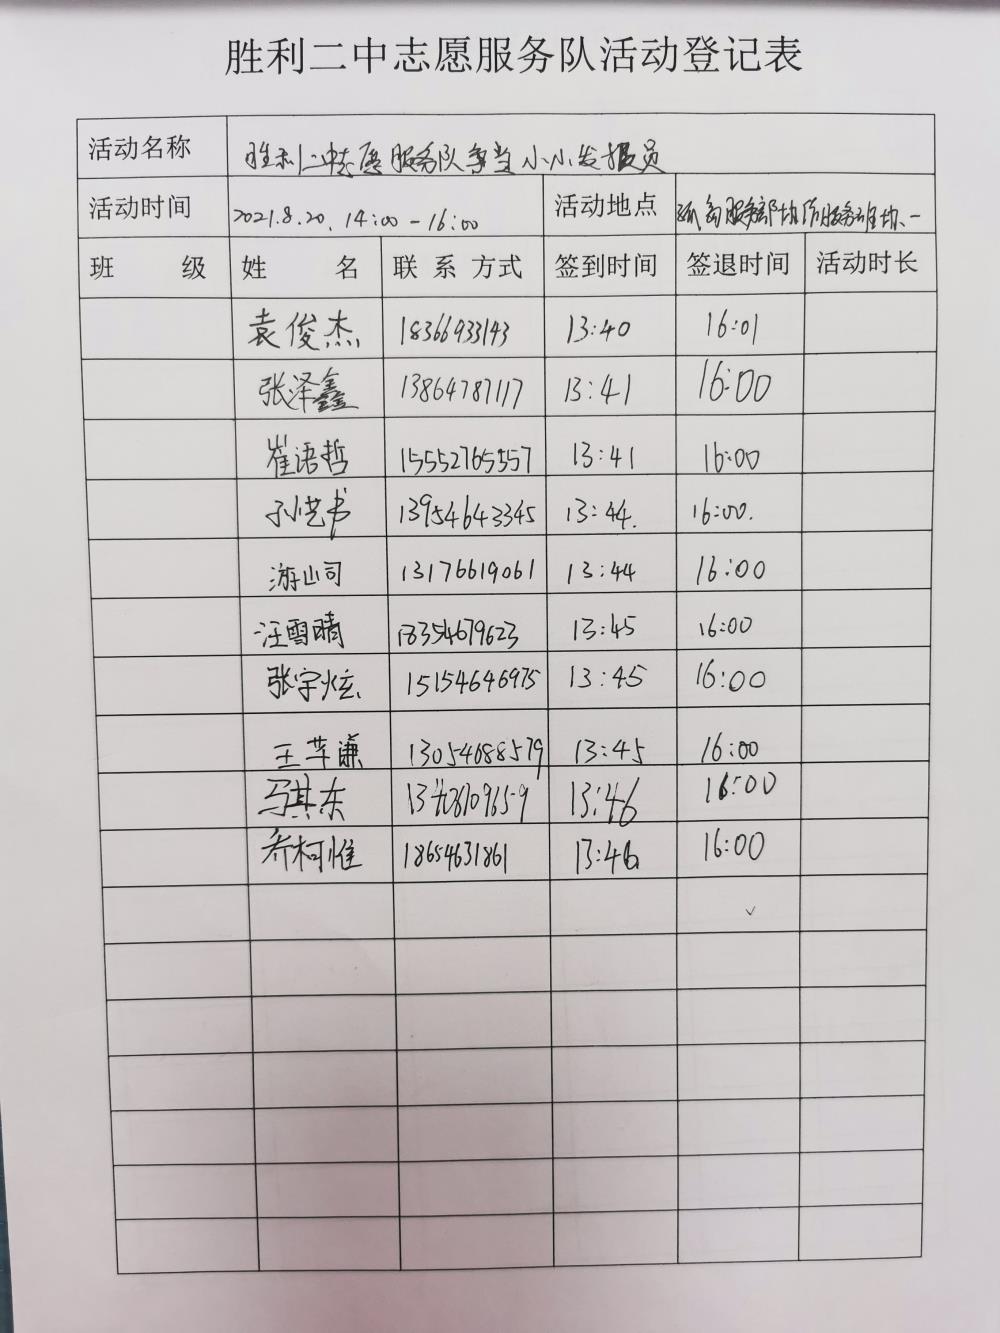 胜利二中志愿服务队活动登记表
活动名称 胜利二中志愿服务队争当小小发报员
活动时间 2021.8.20. 14:00-16:00 活动地点
班 级 姓 名 联系方式 签到时间 签退时间 活动时长
袁俊杰 18366933143 13:40 16:01
张泽鑫 13864787117 13:41 16:00
崔语哲 15552765557 13:41 16:00
孙艺书 13954643345 13:44. 16:00.
游山司 13176619061 13:44 16:00
汪雪晴 18354679623 13:45 16:00
张宇炫 15154646975 13:45 16:00
王芊谦 13054688579 13:45 16:00
马其东 13:46 16:00
乔柯惟 18654631861 13:46 16:00